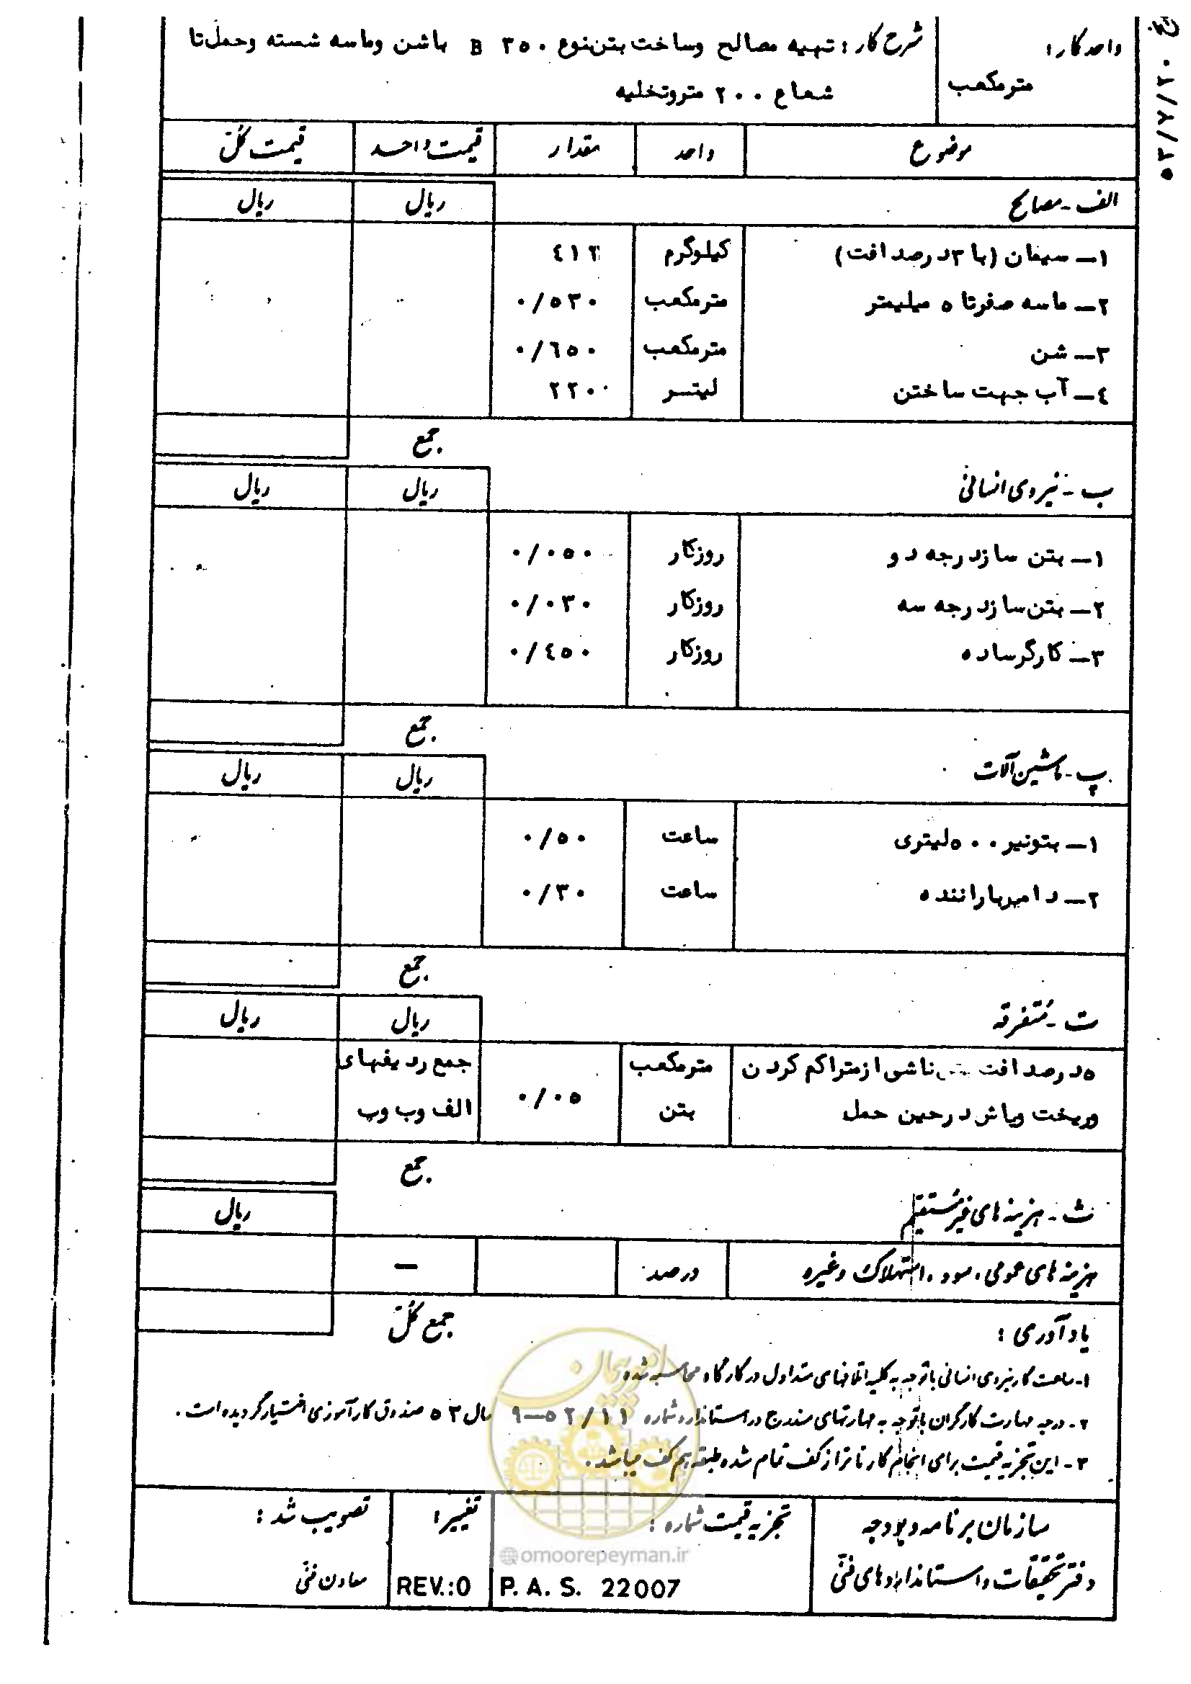 ۵۳/۷/۲۰
واحد کار :
مترمکعب
شرح کار : تهیه مصالح وساخت بتن نوع B ۳۵۰ باشن وماسه شسته وحمل تا
شعاع ۲۰۰ متروتخلیه
موضوع واحد مقدار قیمت واحد قیمت کل
الف - مصالح ریال ریال
۱- سیمان (با ۳درصد افت) کیلوگرم ٤۱۲
۲- ماسه صفرتا ۵ میلیمتر مترمکعب ۰/۵۳۰
۳- شن مترمکعب ۰/٦۵۰
٤- آب جهت ساختن لیتر ۲۲۰۰
جمع
ب - نیروی انسانی ریال ریال
۱- بتن ساز درجه دو روزکار ۰/۰۵۰
۲- بتن ساز درجه سه روزکار ۰/۰۳۰
۳- کارگرساده روزکار ۰/٤۵۰
جمع
پ - ماشین آلات ریال ریال
۱- بتونیر ۵۰۰ لیتری ساعت ۰/۵۰
۲- دامپر باراننده ساعت ۰/۳۰
جمع
ت - متفرقه ریال ریال
۵درصد افت بتن ناشی ازمتراکم کردن مترمکعب ۰/۰۵ جمع ردیفهای
وریخت وپاش درحین حمل بتن الف وب وپ
جمع
ث - هزینه های غیرمستقیم ریال
هزینه های عمومی ، سود ، استهلاک وغیره درصد -
جمع کل
یادآوری :
۱- ساعت کار نیروی انسانی با توجه به کلیه اتلافهای متداول در کارگاه محاسبه شده
۲- درجه مهارت کارگران باتوجه به مهارتهای مندرج در استاندارد شماره ۹-۵۲/۱۱ سال ۵۳ صندوق کارآموزی اختیار گردیده است .
۳- این تجزیه قیمت برای انجام کار تا تراز کف تمام شده طبقه هم کف میباشد .
سازمان برنامه وبودجه
دفتر تحقیقات و استانداردهای فنی
تجزیه قیمت شماره :
P. A. S. 22007
تغییر :
REV.:0
تصویب شد :
معاون فنی
امور پیمان
@omoorepeyman.ir